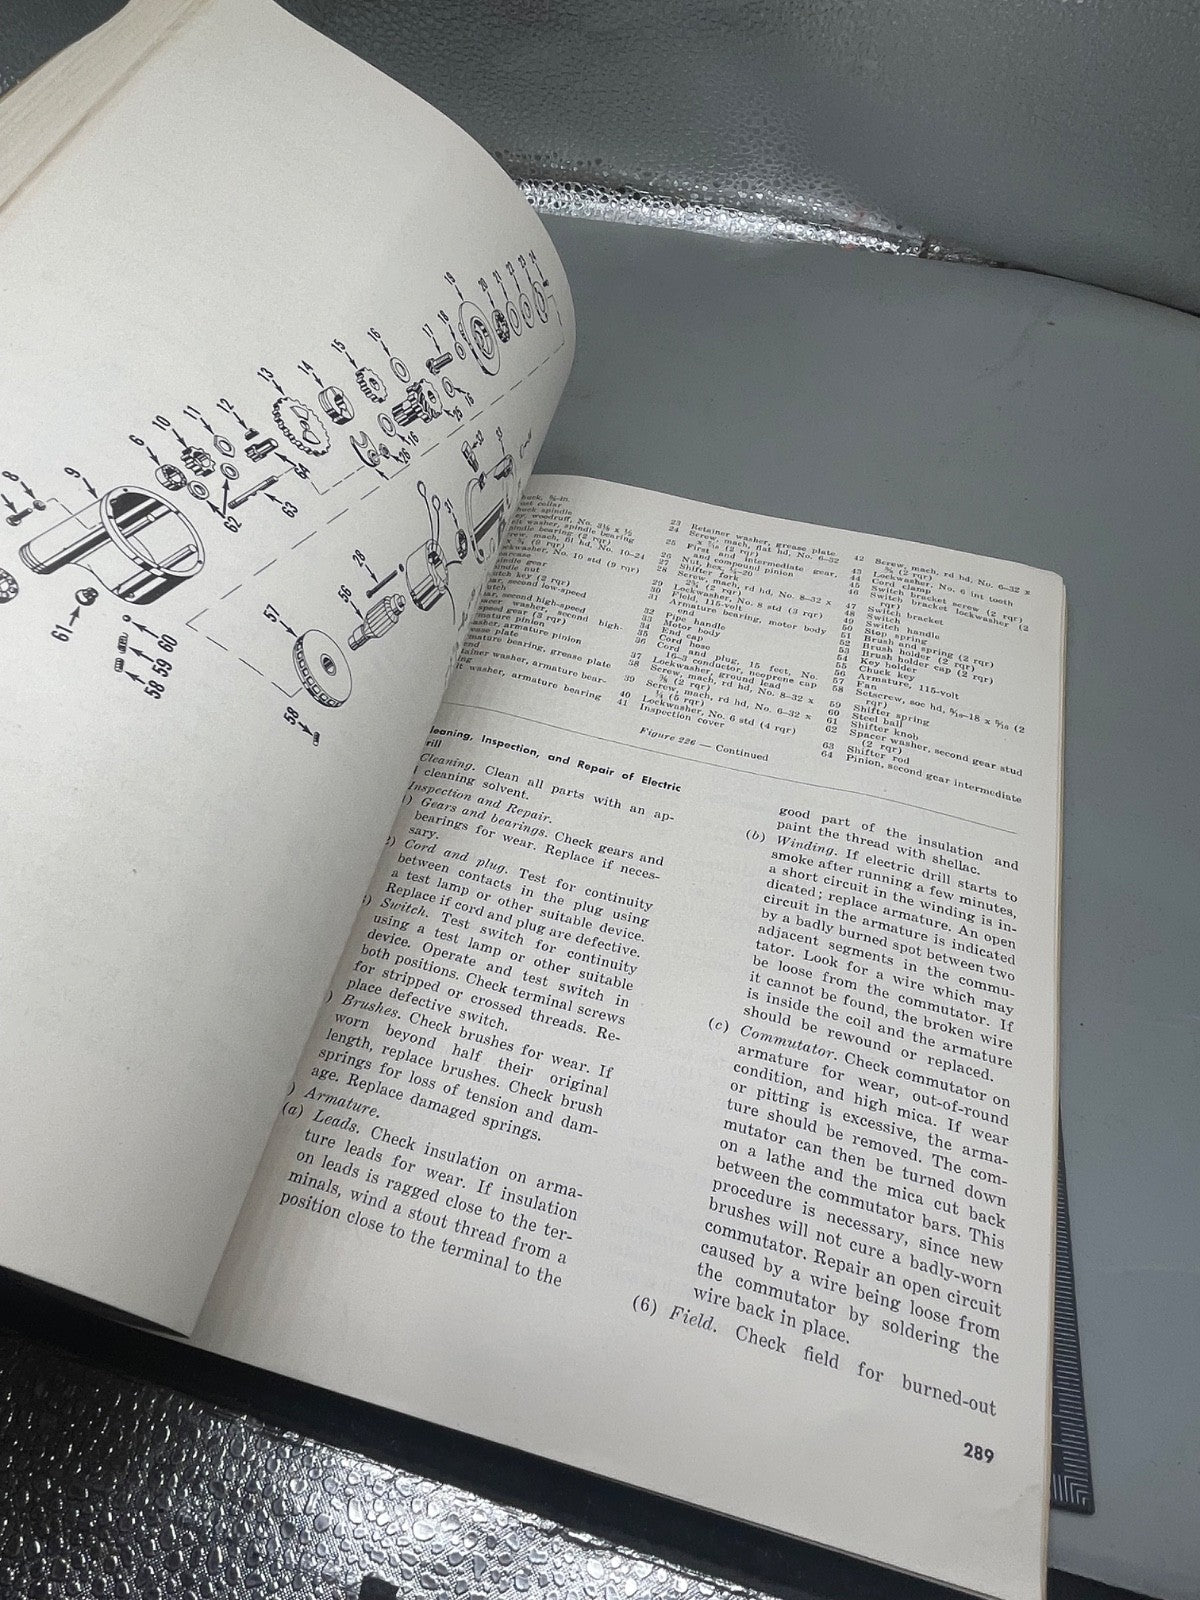 8
9
6
10
11
12
13
14
15
16
17
18
19
20
21
22
23
24
62
63
64
16
26
26
18
61
60
59
58
57
56
28
58
31
32
33
collar
spindle
woodruff, No.
washer, spindle bearing
bearing (2 rqr)
mach, fil hd, No. 10–24
(9 rqr)
No. 10 std (9 rqr)
gear
nut
key (2 rqr)
second low-speed
second high-speed
washer, second high-
speed gear (3 rqr)
pinion
armature pinion
plate
bearing, grease plate
end
washer, armature bear-
washer, armature bearing
23 Retainer washer, grease plate
24 Screw, mach, flat hd, No. 6–32
x 7/16 (2 rqr)
25 First and intermediate gear,
and compound pinion
26 Nut, hex, 1/4–20
27 Shifter fork
28 Screw, mach, rd hd, No. 8–32 x
2 3/4 (2 rqr)
29 Lockwasher, No. 8 std (3 rqr)
30 Field, 115-volt
31 Armature bearing, motor body
end
32 Pipe handle
33 Motor body
34 End cap
35 Cord hose
36 Cord and plug, 15 feet, No.
16–3 conductor, neoprene cap
37 Lockwasher, ground lead
38 Screw, mach, rd hd, No. 8–32 x
3/8 (2 rqr)
39 Screw, mach, rd hd, No. 6–32 x
1/4 (5 rqr)
40 Lockwasher, No. 6 std (4 rqr)
41 Inspection cover
42 Screw, mach, rd hd, No. 6–32 x
(2 rqr)
43 Lockwasher, No. 6 int tooth
44 Cord clamp
45 Switch bracket screw (2 rqr)
46 Switch bracket lockwasher (2
rqr)
47 Switch bracket
48 Switch
49 Switch handle
50 Stop spring
51 Brush and spring (2 rqr)
52 Brush holder (2 rqr)
53 Brush holder cap (2 rqr)
54 Key holder
55 Chuck key
56 Armature, 115-volt
57 Fan
58 Setscrew, soc hd, 5/16–18 x 5/16 (2
rqr)
59 Shifter spring
60 Steel ball
61 Shifter knob
62 Spacer washer, second gear stud
(2 rqr)
63 Shifter rod
64 Pinion, second gear intermediate
Figure 226 — Continued
leaning, Inspection, and Repair of Electric
rill
Cleaning. Clean all parts with an ap-
cleaning solvent.
Inspection and Repair.
) Gears and bearings. Check gears and
bearings for wear. Replace if neces-
sary.
) Cord and plug. Test for continuity
between contacts in the plug using
a test lamp or other suitable device.
Replace if cord and plug are defective.
) Switch. Test switch for continuity
using a test lamp or other suitable
device. Operate and test switch in
both positions. Check terminal screws
for stripped or crossed threads. Re-
place defective switch.
) Brushes. Check brushes for wear. If
worn beyond half their original
length, replace brushes. Check brush
springs for loss of tension and dam-
age. Replace damaged springs.
) Armature.
(a) Leads. Check insulation on arma-
ture leads for wear. If insulation
on leads is ragged close to the ter-
minals, wind a stout thread from a
position close to the terminal to the
good part of the insulation and
paint the thread with shellac.
(b) Winding. If electric drill starts to
smoke after running a few minutes,
a short circuit in the winding is in-
dicated; replace armature. An open
circuit in the armature is indicated
by a badly burned spot between two
adjacent segments in the commu-
tator. Look for a wire which may
be loose from the commutator. If
it cannot be found, the broken wire
is inside the coil and the armature
should be rewound or replaced.
(c) Commutator. Check commutator on
armature for wear, out-of-round
condition, and high mica. If wear
or pitting is excessive, the arma-
ture should be removed. The com-
mutator can then be turned down
on a lathe and the mica cut back
between the commutator bars. This
procedure is necessary, since new
brushes will not cure a badly-worn
commutator. Repair an open circuit
caused by a wire being loose from
the commutator by soldering the
wire back in place.
(6) Field. Check field for burned-out
289